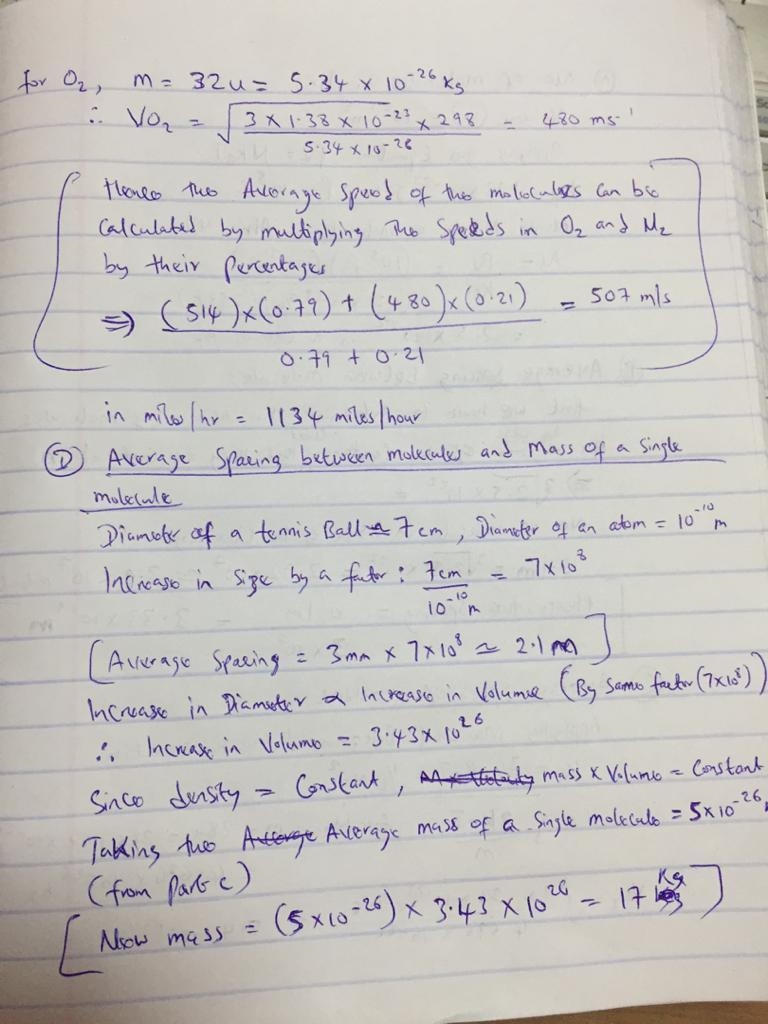 for O₂, m = 32u = 5.34 × 10⁻²⁶ Kg
∴ VO₂ = √(3 × 1.38 × 10⁻²³ × 298 / 5.34 × 10⁻²⁶) = 480 ms⁻¹
Hence the Average Speed of the molecules can be
Calculated by multiplying The Speeds in O₂ and N₂
by their percentages
⇒ (514)×(0.79) + (480)×(0.21) / 0.79 + 0.21 = 507 m/s
in miles/hr = 1134 miles/hour
(D) Average Spacing between molecules and Mass of a Single
molecule
Diameter of a tennis Ball ≈ 7cm, Diameter of an atom = 10⁻¹⁰ m
Increase in Size by a factor: 7cm / 10⁻¹⁰ m = 7×10⁸
[Average Spacing = 3nm × 7×10⁸ ≃ 2.1 m]
Increase in Diameter ∝ Increase in Volume (By Same factor (7×10⁸))
∴ Increase in Volume = 3.43×10²⁶
Since density = Constant, mass × Volume = Constant
Taking the Average mass of a Single molecule = 5×10⁻²⁶
(from part c)
[Now mass = (5×10⁻²⁶) × 3.43 × 10²⁶ = 17 Kg]